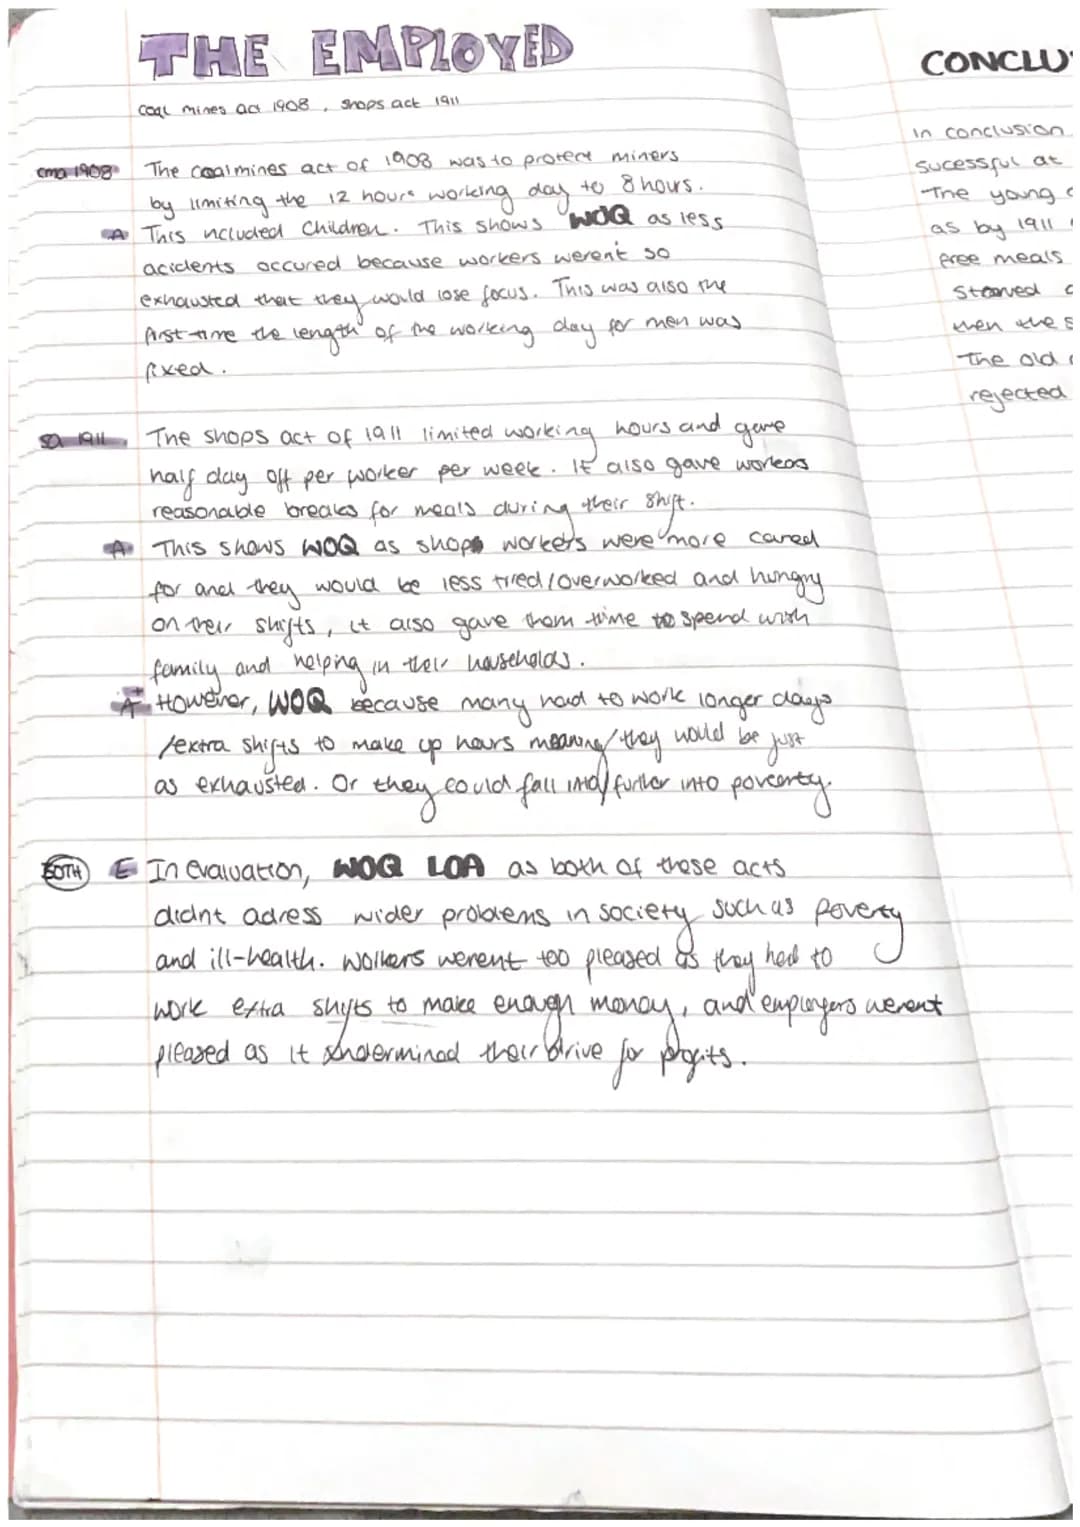 THE EMPLOYED
coal mines act 1908, shops act 1911
cma 1908 The coalmines act of 1908 was to protect miners
by limiting the 12 hours working day to 8 hours.
A This included Children. This shows WOQ as less
acidents occured because workers werent so
exhausted that they would lose focus. This was also the
first time the length of the working day for men was
fixed.
sa 1911 The shops act of 1911 limited working hours and gave
half day off per worker per week. It also gave workers
reasonable breaks for meals during their shift.
A This shows WOQ as shop workers were more cared
for and they would be less tried/overworked and hungry
on their shifts, it also gave them time to spend with
family and helping in their households.
A+ However, WOQ because many had to work longer days
/extra shifts to make up hours meaning they would be just
as exhausted. Or they could fall into/further into povcerty.
BOTH E In evaluation, WOQ LOA as both of these acts
didnt adress wider problems in society such as poverty
and ill-health. Workers werent too pleased as they had to
work extra shifts to make enough money, and employers werent
pleased as it undermined their drive for profits.
CONCLU
In conclusion
sucessful at
The young
as by 1911
free meals
starved
then the s
The old
rejected